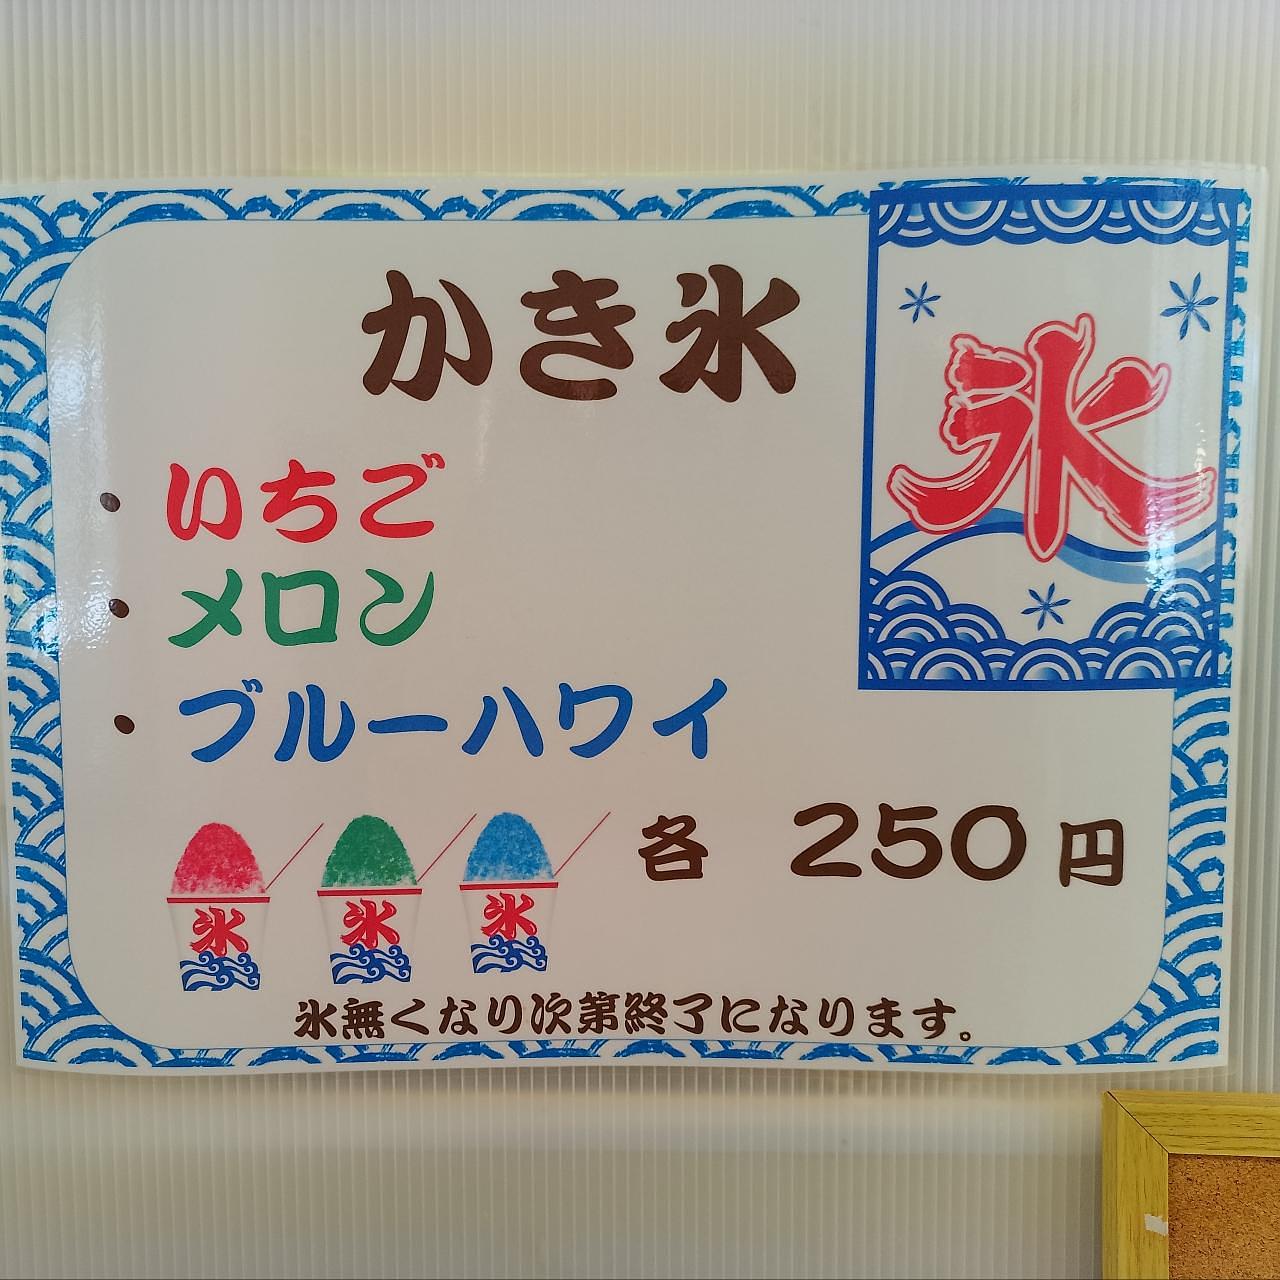 かき氷
氷
・いちご
・メロン
・ブルーハワイ
各 250円
氷 氷 氷
氷無くなり次第終了になります。